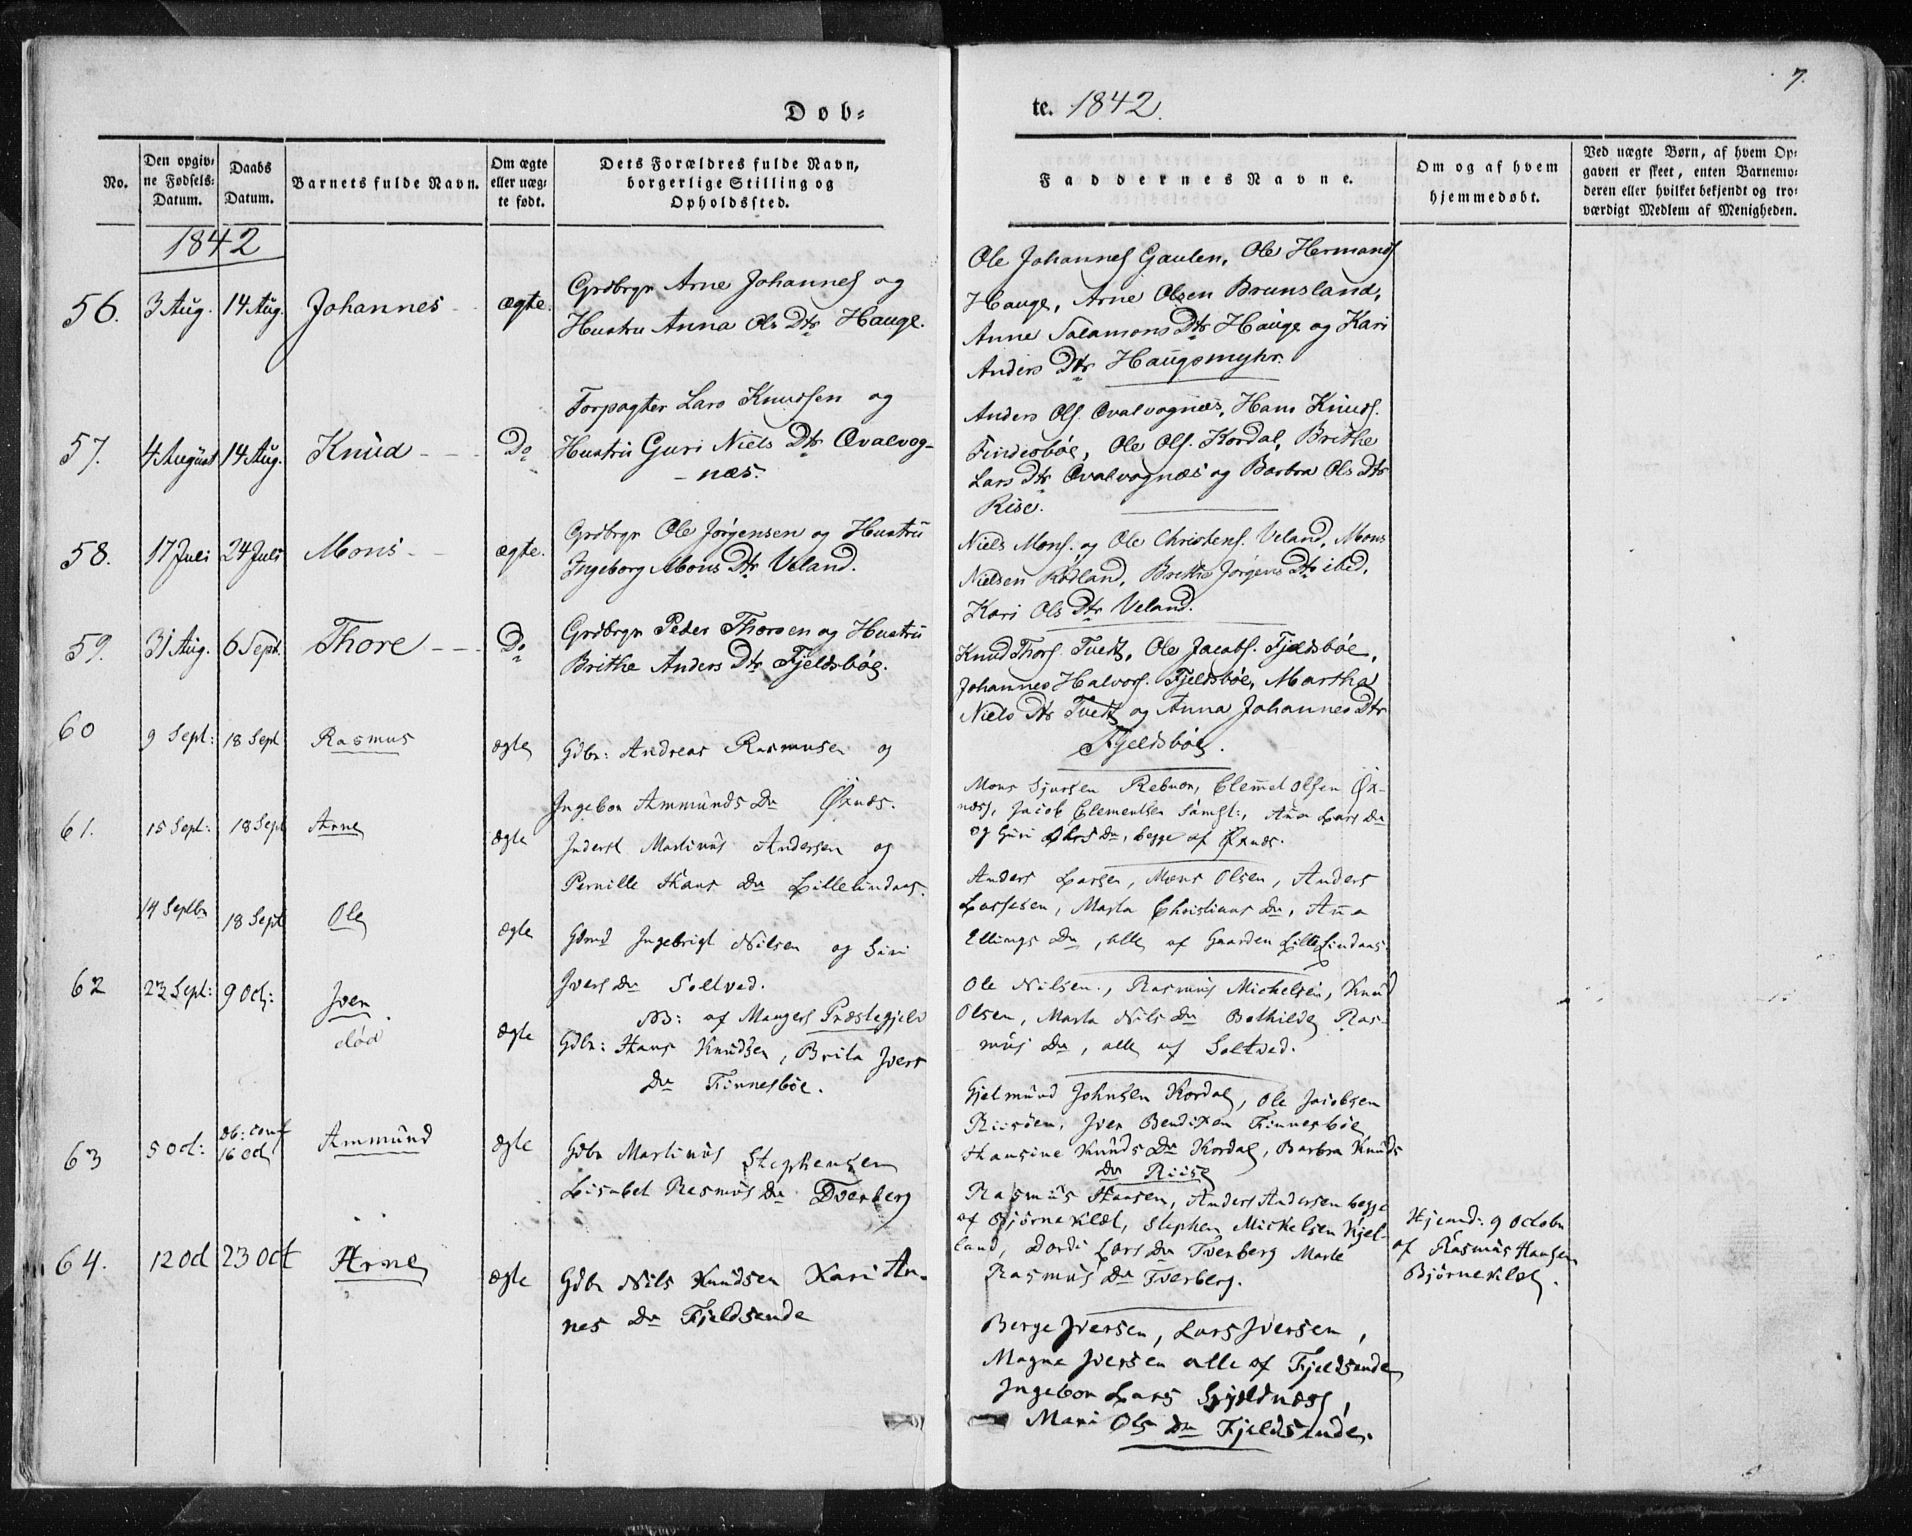 7.
Døb=
te. 1842.
No.
Den opgiv=
ne Fødsels=
Datum.
Daabs
Datum.
Barnets fulde Navn.
Om ægte
eller uæg=
te født.
Dets Forældres fulde Navn,
borgerlige Stilling og
Opholdssted.
Faddernes Navne.
Om og af hvem
hjemmedøbt.
Ved uægte Børn, af hvem Op=
gaven er skeet, enten Barnemo=
deren eller hvilket bekjendt og tro=
værdigt Medlem af Menigheden.
1842
56. 3 Aug. 14 Aug. Johannes - ægte.
Grdbrgr Arne Johannes og
Hustru Anna Ols Dtr Hauge.
Ole Johannes Gaulen, Ole Hermands
Hauge, Arne Olsen Brunsland,
Anne Salamons Dtr Hauge og Kari
Anders Dtr Haugsmyhr.
57. 4 August 14 Aug. Knud - - - Do
Forpagter Lars Knudsen og
Hustru Guri Niels Dtr Qvalvog-
- næs.
Anders Ols. Qvalvognæs, Hans Knuds.
Findesbøe, Ole Ols. Kordal, Brithe
Lars Dtr Qvalvognæs og Barbra Ols Dtr
Rise.
58. 17 Juli 24 Juli Mons - - ægte.
Grdbrgr Ole Jørgensen og Hustru
Ingeborg Mons Dtr Veland.
Niels Mons. og Ole Christens. Veland, Mons
Nielsen Rødland, Brithe Jørgens Dtr ibed,
Kari Ols Dtr Veland.
59. 31 Aug. 6 Sept. Thore - - - Do
Grdbrgr Peder Thorsen og Hustru
Brithe Anders Dtr Fjeldsbøe.
Knud Thors. Tvedt, Ole Jacobs. Fjeldsbøe,
Johannes Halvors. Fjeldsbøe, Martha
Niels Dtr Tvedt og Anna Johannes Dtr
Fjeldsbøe.
60 9 Sept: 18 Sept Rasmus ægte
Gdbr: Andreas Rasmusen og
Ingebor Ammunds Dr Øxnæs.
Mons Sjursen Rebnor, Clemmet Olsen Øx-
næss, Jacob Clementsen samst:, Ana Lars Dr
og Guri Dr, begge af Øxnæs.
61. 15 Sept: 18 Sept Arne ægte
Inderst Martinus Andersen og
Pernille Hans Dr Lillelindaas.
Anders Larsen, Mons Olsen, Anders
Lassesen, Marta Christians Dr, Ana
Ellings Dr, alle af Gaarden Lille Lindaas.
14 Septbr 18 Sept Ole ægte
Gdmd Ingebrigt Nilsen og Siri
Ivers Dr Soltved.
NB: af Mangers Præstegjeld
Ole Nilsen, Rasmus Michelsen, Knud
Olsen, Marta Nils Dr Bothilde Ras-
mus Dr, alle af Soltved.
62 23 Sept: 9 Oct: Iver
død
ægte
Gdbr: Hans Knudsen, Brita Ivers
Dr Finnesbøe.
Gjelmund Johnsen Kordal, Ole Jacobsen
Riisøen, Iver Bendixen Finnesbøe
Hansine Knuds Dr Kordal, Barbra Knuds
Dr Riise
63 5 Oct: Db: conf
16 Oct
Ammund ægte
Gdbr Martinus Stephensen
Lisabet Rasmus Dr Tverberg
Rasmus Hansen, Anders Andersen begge
af Bjørneklæt, Stephen Mickelsen Kjel-
land, Dordi Lars Dr Tverberg Marte
Rasmus Dr Tverberg.
Hjemd: 9 Octobr
af Rasmus Hansen
Bjørneklet.
64. 12 Oct 23 Oct Arne ægte
Gdbr Nils Knudsen Kari An-
nes Dr Fjeldsende
Berge Iversen, Lars Iversen,
Magne Iversen alle af Fjeldsende
Ingebor Lars
Mari Ols Dr Fjeldsende.